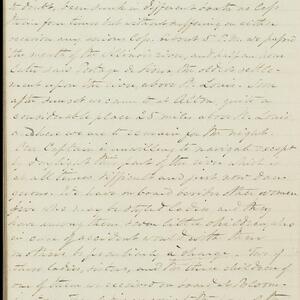 no doubt, been sunk in different boats as Cap-
tain four times but without suffering on either
occasion any serious loss. About 5 P.M. we passed
the mouth of the Illinois river, and
later said Portage de Sioux the oldest settle-
ment upon the river above St. Louis. Soon
after sunset we came to at Alton, quite a
considerable place 25 miles above St. Louis
and here we are to remain for the night.
Our Captain is unwilling to navigate except
by daylight this part of the river which is
at all times difficult and just now dan-
gerous. We have on board besides other women
five who may be styled ladies and they
have among them seven little children who
in case of accident would with their
mothers be peculiarly a charge. Two of
these ladies, sisters, and the three children of
one of them we received on board at Bloom-